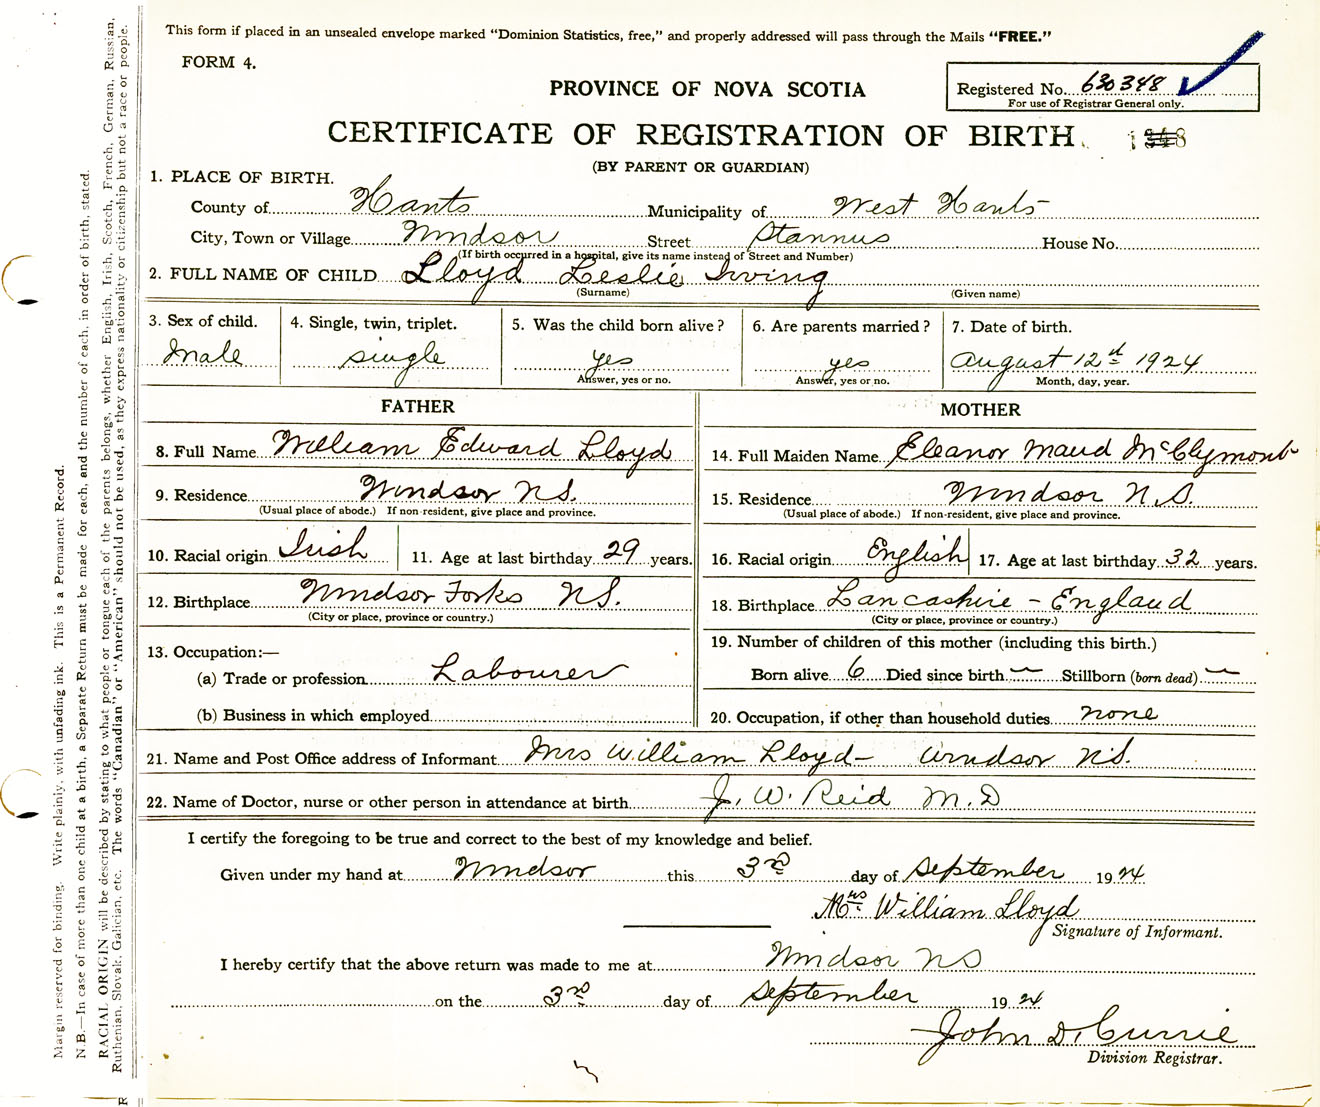 This form if placed in an unsealed envelope marked "Dominion Statistics, free," and properly addressed will pass through the Mails "FREE."
FORM 4.
PROVINCE OF NOVA SCOTIA
Registered No. 630348
For use of Registrar General only.
CERTIFICATE OF REGISTRATION OF BIRTH
(BY PARENT OR GUARDIAN)
1. PLACE OF BIRTH.
County of Hants Municipality of West Hants
City, Town or Village Windsor Street Stannus House No.
(If birth occurred in a hospital, give its name instead of Street and Number)
2. FULL NAME OF CHILD Lloyd Leslie Irving
(Surname) (Given name)
3. Sex of child. 4. Single, twin, triplet. 5. Was the child born alive? 6. Are parents married? 7. Date of birth.
Male single yes yes August 12th 1924
Answer, yes or no. Answer, yes or no. Month, day, year.
FATHER MOTHER
8. Full Name William Edward Lloyd 14. Full Maiden Name Eleanor Maud McClymont
9. Residence Windsor N.S. 15. Residence Windsor N.S.
(Usual place of abode.) If non-resident, give place and province. (Usual place of abode.) If non-resident, give place and province.
10. Racial origin Irish 11. Age at last birthday 29 years. 16. Racial origin English 17. Age at last birthday 32 years.
12. Birthplace Windsor Forks N.S. 18. Birthplace Lancashire - England
(City or place, province or country.) (City or place, province or country.)
13. Occupation:— 19. Number of children of this mother (including this birth.)
(a) Trade or profession Labourer Born alive 6 Died since birth — Stillborn (born dead) —
(b) Business in which employed 20. Occupation, if other than household duties none
21. Name and Post Office address of Informant Mrs William Lloyd - Windsor N.S.
22. Name of Doctor, nurse or other person in attendance at birth J. W. Reid M.D
I certify the foregoing to be true and correct to the best of my knowledge and belief.
Given under my hand at Windsor this 3rd day of September 1924
Mrs William Lloyd
Signature of Informant.
I hereby certify that the above return was made to me at Windsor NS
on the 3rd day of September 1924
John D. Currie
Division Registrar.
Margin reserved for binding. Write plainly, with unfading ink. This is a Permanent Record.
N.B.—In case of more than one child at a birth, a Separate Return must be made for each, and the number of each, in order of birth, stated.
RACIAL ORIGIN will be described by stating to what people or tongue each of the parents belongs, whether English, Irish, Scotch, French, German, Russian,
Ruthenian, Slovak, Galician, etc. The words "Canadian" or "American" should not be used, as they express nationality or citizenship but not a race or people.